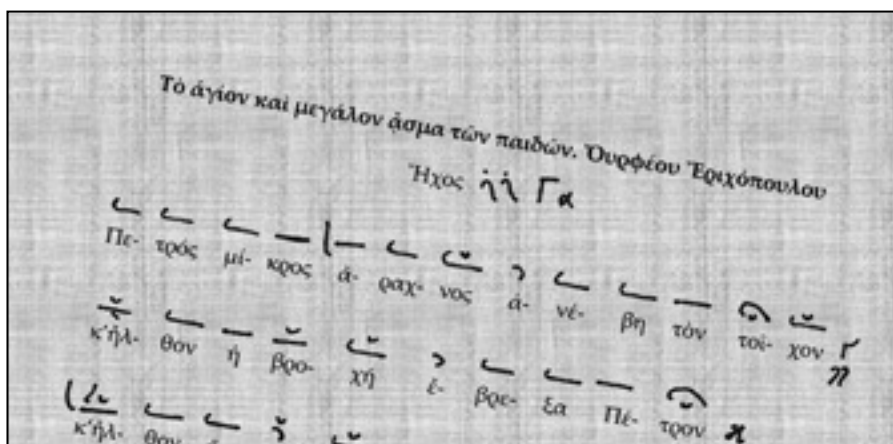 Τὸ ἁγίον καὶ μεγάλον ᾆσμα τῶν παιδῶν. Ὀυρφέου Ἐριχόπουλου
Ἦχος Γα
Πε- τρός μί- κρος ἀ- ραχ- νος ἀ- νέ- βη τὸν τοί- χον
κ'ἦλ- θον ἡ βρο- χή ἔ- βρε- ξα Πέ- τρον
κ'ἦλ- θον